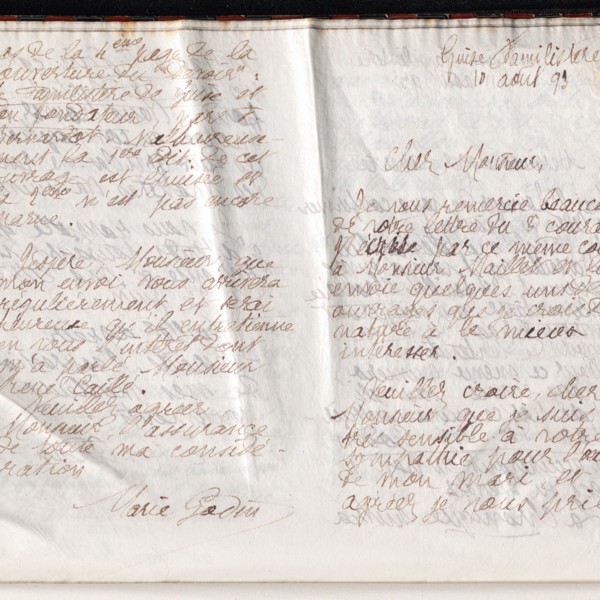 as de la 4eme page de la
couverture du "Devoir":
Familistère de Guise et
son fondateur
Bernardot Malheureuse-
ment la 1ere édit. de cet
ouvrage est épuisée et
la 2eme n'est pas encore
parue.
J'espère, Monsieur, que
mon envoi vous arrivera
régulièrement et serai
heureuse qu'il entretienne
en vous l'intérêt dont
m'a parlé Monsieur
René Caille.
Veuillez agréer
Monsieur, l'assurance
de toute ma considé-
ration
Marie Godin
Guise Familistère
10 août 93
Cher Monsieur,
Je vous remercie beauco
de votre lettre du 8 coura
par ce même cou
à Monsieur Maillet et lui
envoie quelques uns des
ouvrages que je crois de
nature à le mieux
intéresser.
Veuillez croire, cher
Monsieur que je suis
très sensible à votre
sympathie pour l'œu
de mon mari et
agréer je vous prie